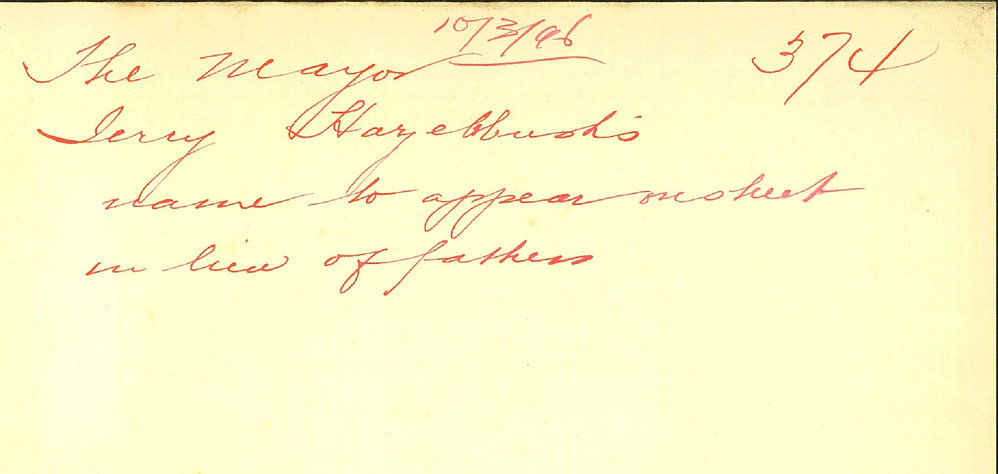 10/3/96
The Mayor 374
Jerry Hazelbush's
name to appear on sheet
in lieu of fathers